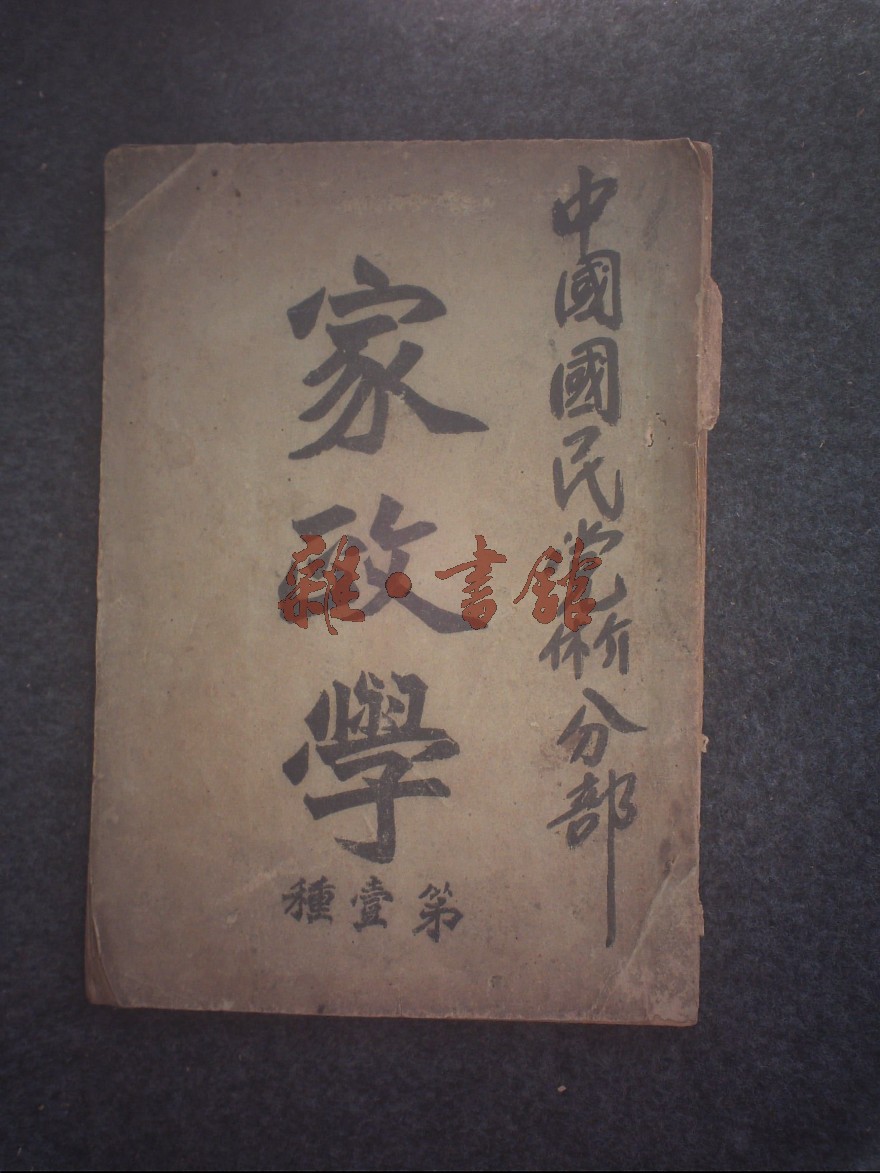 中國國民党介休分部
家政學
第壹種
雜·書館